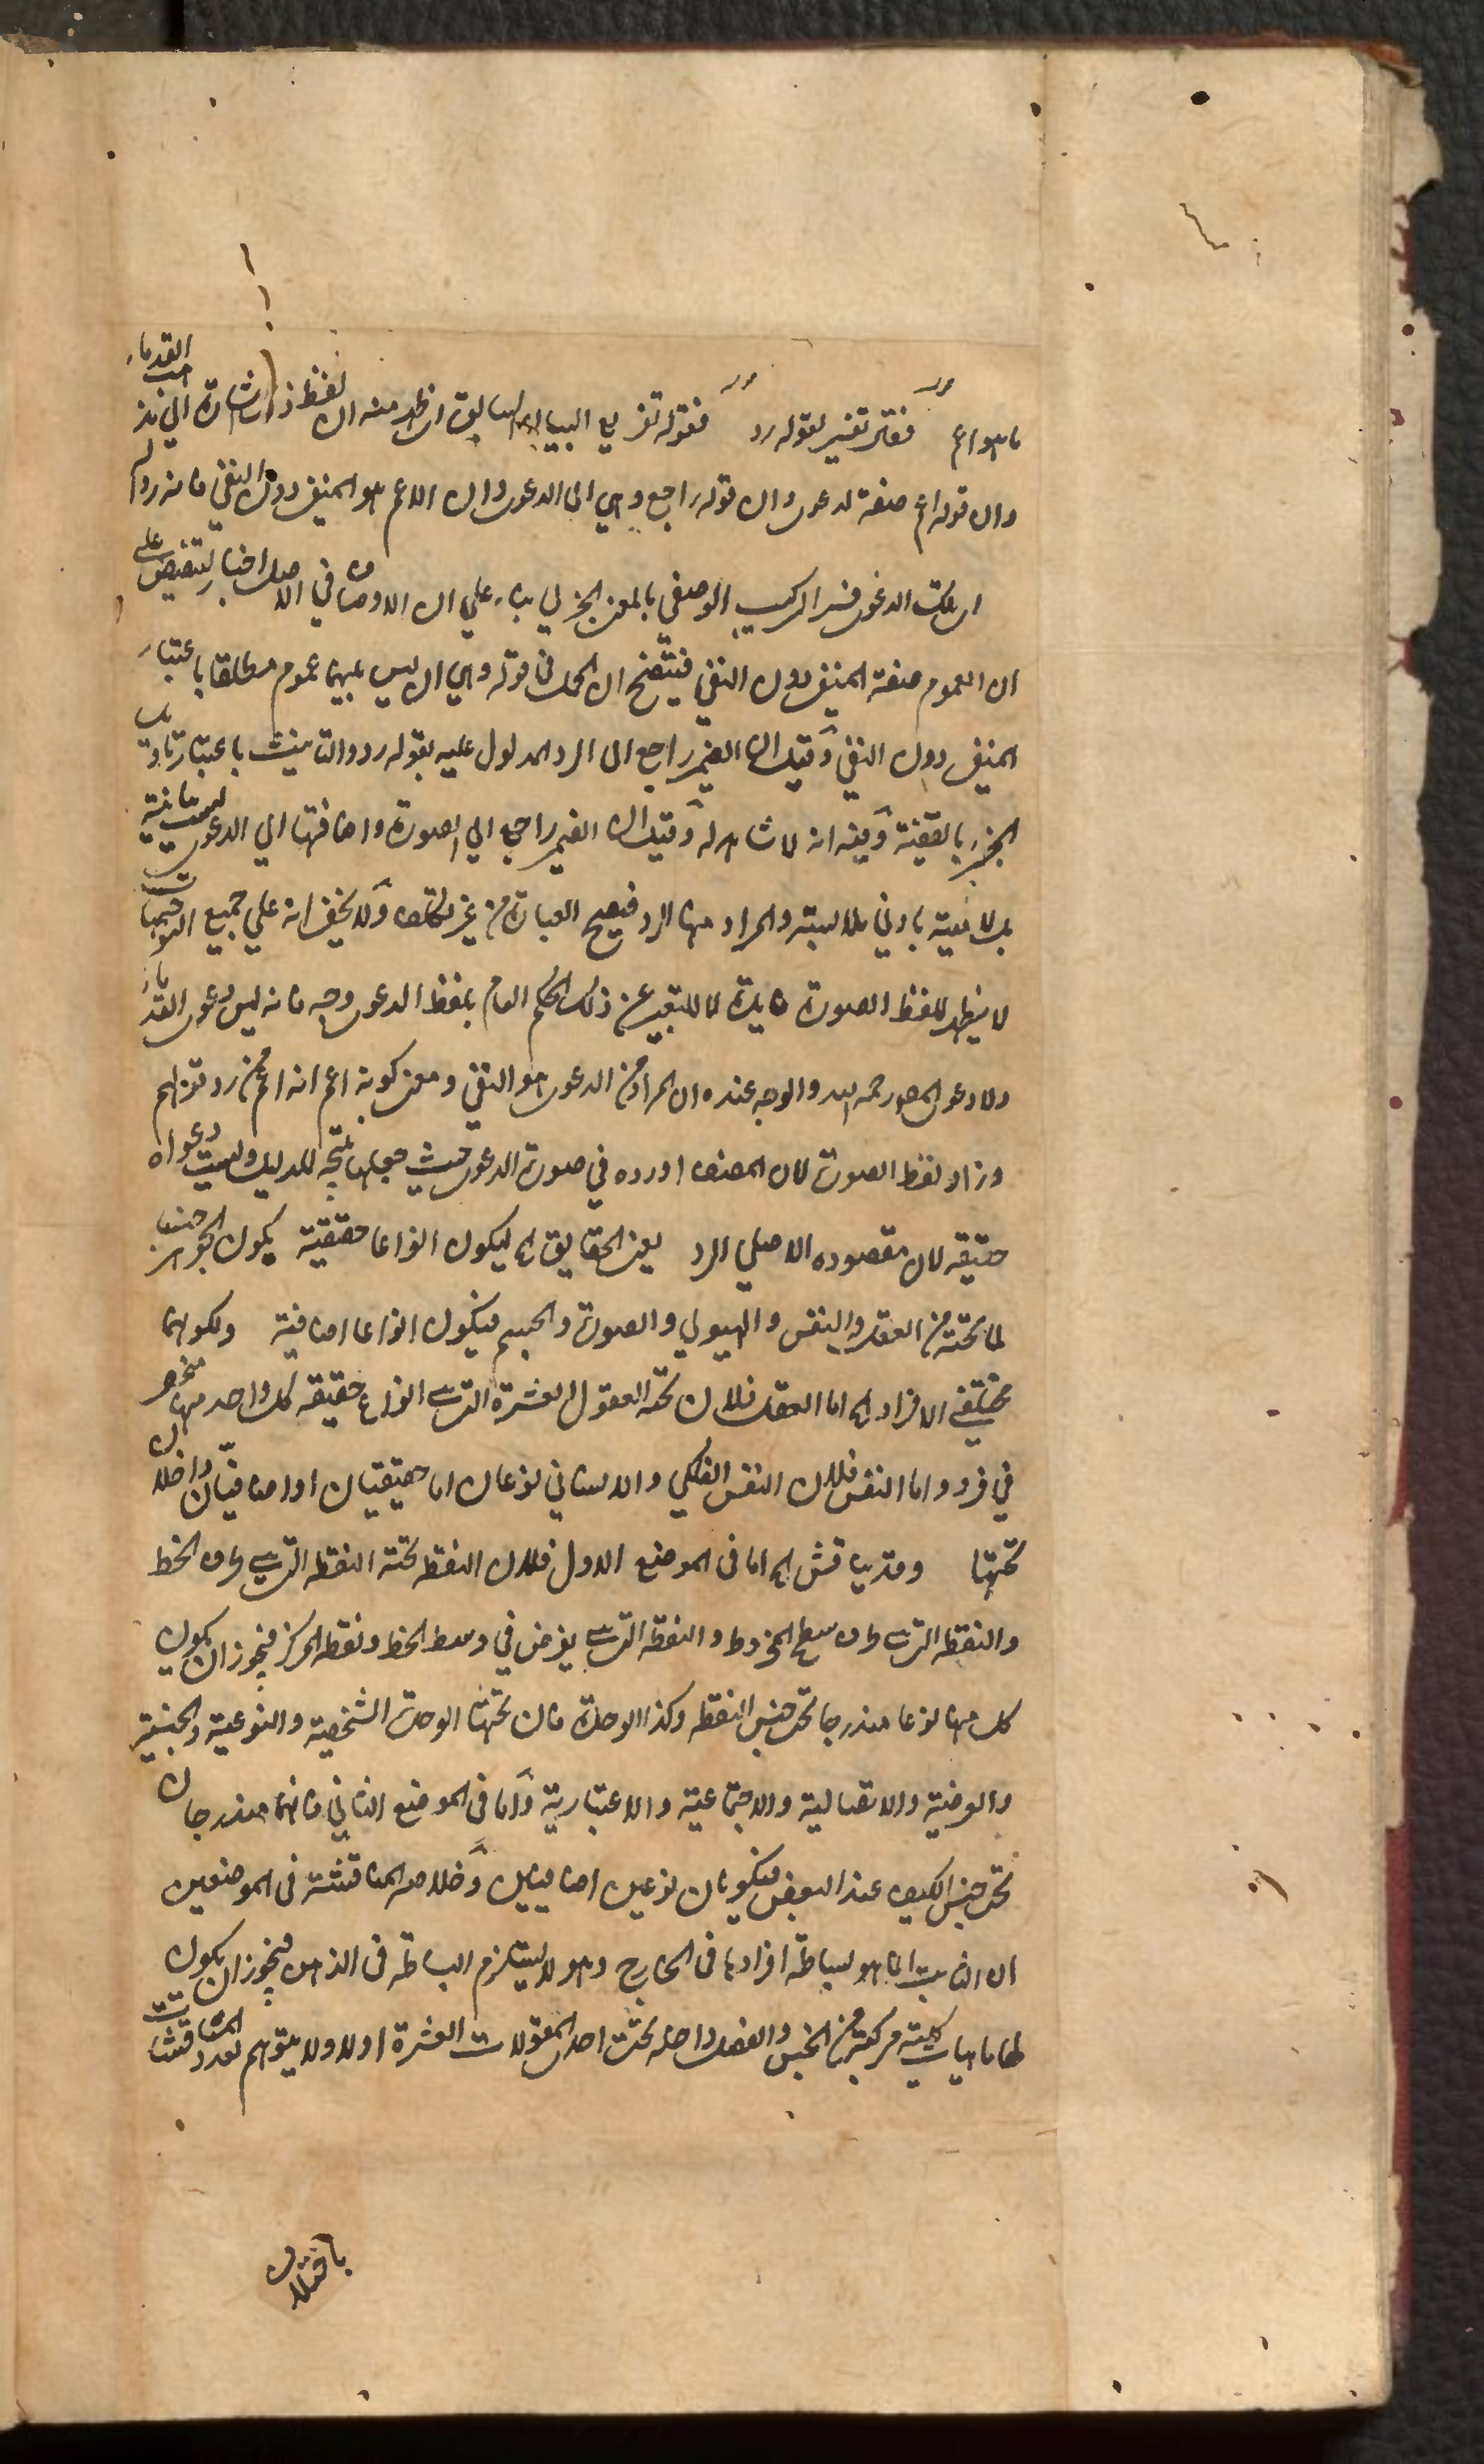 ما هو اعم فقد تفسير لقوله رد فقوله تفريع البيان السابق اى ظهر منه ان لفظ ذلك اشارة الى مذهب القدماء
وان قوله اعم صفة لدعوى وان قوله راجع وهى الى الدعوى وان الاعم هو المنفى دون النفى فانه رد لهم
الدعوى فسر التركيب الوصفى بالمعنى الخبرى بناء على ان الاوصاف فى الاصل اخبار لتنصيص على
ان العموم صفة المنفى دون النفى فيتضح ان الحمل فى قوله وهى ان ليس بينهما عموم مطلقا باعتبار
المنفى دون النفى وقيل ان الضمير راجع الى الرد المدلول عليه بقوله رد والتانيث باعتبار تاويل
الخبر بالقضية وفيه انه لا شاهد له وقيل ان الضمير راجع الى الصورة واضافتها الى الدعوى ليست بيانية
بل لامية بادنى ملابسة والمراد منها الرد فيصح العبارة من غير تكلف ولا يخفى انه على جميع التوجيهات
لا يظهر للفظ الصورة فايدة لا للتعبير عن ذلك الحكم العام بلفظ الدعوى وجه فانه ليس دعوى القدماء
ولا دعوى المص رحمه الله والوجه عنده ان المراد من الدعوى هو النفى ومعنى كونه اعم انه اعم من رد قولهم
وزاد لفظ الصورة لان المصنف اورده فى صورة الدعوى حيث جعلها نتيجة للدليل وليست دعواه
حقيقة لان مقصوده الاصلى الرد يعنى الحقايق اه ليكون انواعا حقيقية يكون الجوهر جنسا
لما تحته من العقل والنفس والهيولى والصورة والجسم فيكون انواعا اضافية ولكونها
مختلفى الافراد اه اما العقل فلان تحته العقول العشرة التى هى انواع حقيقة كل واحد منها منحصر
فى فرد واما النفس فلان النفس الفلكى والانسانى نوعان اما حقيقيان او اضافيان داخلان
تحتها وقد يناقش اه اما فى الموضع الاول فلان النقطة تحته النقطة التى هى طرف الخط
والنقطة التى هى طرف سطح المخروط والنقطة التى يفرض فى وسط الخط ونقطة المركز فيجوز ان يكون
كل منها نوعا مندرجا تحت جنس النقطة وكذا الوحدة فان تحتها الوحدة الشخصية والنوعية والجنسية
والوضعية والاتصالية والاجتماعية والاعتبارية واما فى الموضع الثانى فانهما مندرجان
تحت جنس الكيف عند البعض فيكونان نوعين اضافيين وخلاصه المناقشة فى الموضعين
ان الثابت انما هو بساطة افرادها فى الخارج وهو لا يستلزم البساطة فى الذهن فيجوز ان يكون
لها ماهيات كلية مركبة من الجنس والفصل داخلة تحت احد المقولات العشرة اولا ولا يتوهم تعدد المناقشات